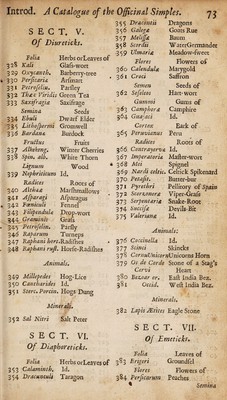 Introd. A Catalogue of the Officinal Simples. 73
SECT. V.
Of Diureticks.
Folia Herbs or Leaves of
328 Kali Glass-wort
329 Oxycanth. Barberry-tree
330 Persicaria Arsmart
331 Petroselin. Parsley
332 Thea Viridis Green Tea
333 Saxifragia Saxifrage
Semina Seeds
334 Ebuli Dwarf Elder
335 Lithospermi Gromwell
336 Bardana Burdock
Fructus Fruits
337 Alkekeng. Winter Cherries
338 Spin. alb. White Thorn
Lignum Wood
339 Nephriticum Id.
Radices Roots of
340 Althea Marshmallows
341 Asparagi Asparagus
342 Fœniculi Fennel
343 Filipendula Drop-wort
344 Graminis Grass
345 Petroselin. Parsly
346 Raparum Turneps
347 Raphani hort. Radishes
348 Raphani rust. Horse-Radishes
Animals.
349 Millepedes Hog-Lice
350 Cantharides Id.
351 Sterc. Porcin. Hogs Dung
Minerals.
352 Sal Nitri Salt Peter
SECT. VI.
Of Diaphoreticks.
Folia Herbs or Leaves of
353 Calaminth. Id.
354 Dracunculi Taragon
355 Dracontii Dragons
356 Galega Goats Rue
357 Melissa Baum
358 Scordii Water Germander
359 Ulmaria Meadow-sweet
Flores Flowers of
360 Calendula Marygold
361 Croci Saffron
Semen Seeds of
362 Seseleos Hart-wort
Gummi Gums of
363 Camphora Camphire
364 Guajaci Id.
Cortex Bark of
365 Peruvianus Peru
Radices Roots of
366 Contrayerva Id.
367 Imperatoria Master-wort
368 Mei Spignel
369 Nardi celtic. Celtick Spikenard
370 Petasit. Butter-bur
371 Pyrethri Pellitory of Spain
372 Scorzonera Viper-Grass
373 Serpentaria Snake-Root
374 Succisa Devils-Bit
375 Valeriana Id.
Animals.
376 Coccinella Id.
377 Scinci Skincks
378 Cornu Unicorn Unicorns Horn
379 Os de Corde Cervi Stone of a Stag's Heart
380 Bezoar or. East India Bez.
381 Occid. West India Bez.
Minerals.
382 Lapis Ætites Eagle Stone
SECT. VII.
Of Emeticks.
Folia Leaves of
383 Erigeri Groundsel
Flores Flowers of
384 Persicarum Peaches
Semina